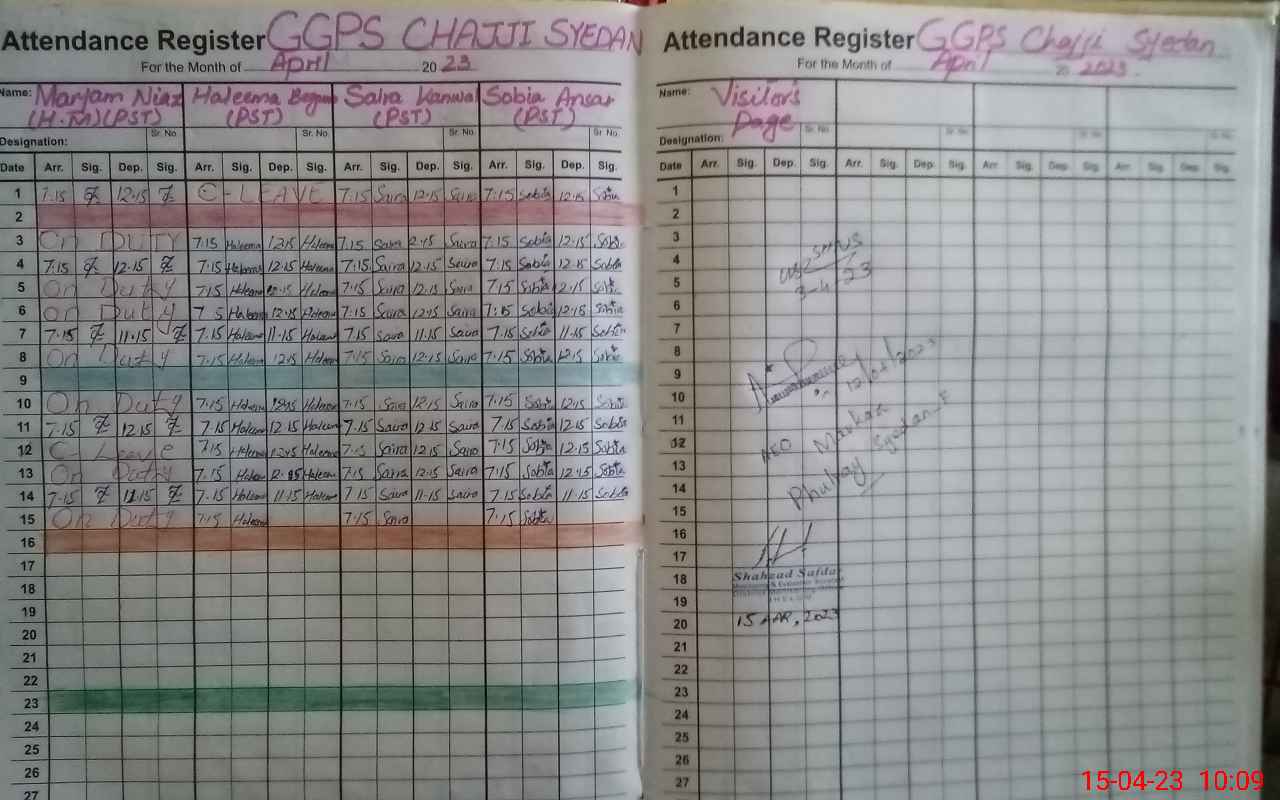 Attendance Register GGPS CHAJJI SYEDAN
For the Month of April 2023
Name: Maryam Niaz Haleema Begum Saira Kanwal Sobia Ansar
(H.M)(PST) (PST) (PST) (PST)
Sr. No. Sr. No. Sr. No. Sr. No.
Designation:
Date Arr. Sig. Dep. Sig. Arr. Sig. Dep. Sig. Arr. Sig. Dep. Sig. Arr. Sig. Dep. Sig.
1 7:15 12:15 C-LEAVE 7:15 Saira 12:15 Saira 7:15 Sobia 12:15 Sobia
2
3 On DUTY 7:15 Haleema 12:15 Haleema 7:15 Saira 2:15 Saira 7:15 Sobia 12:15 Sobia
4 7:15 12:15 7:15 Haleema 12:15 Haleema 7:15 Saira 12:15 Saira 7:15 Sobia 12:15 Sobia
5 On Duty 7:15 Haleema 12:15 Haleema 7:15 Saira 12:15 Saira 7:15 Sobia 12:15 Sobia
6 On Duty 7 5 Haleema 12:15 Haleema 7:15 Saira 12:15 Saira 7:15 Sobia 12:15 Sobia
7 7:15 11:15 7:15 Haleema 11:15 Haleema 7:15 Saira 11:15 Saira 7:15 Sobia 11:15 Sobia
8 On Duty 7:15 Haleema 12:15 Haleema 7:15 Saira 12:15 Saira 7:15 Sobia 12:15 Sobia
9
10 On Duty 7:15 Haleema 12:15 Haleema 7:15 Saira 12:15 Saira 7:15 Sobia 12:15 Sobia
11 7:15 12:15 7:15 Haleema 12:15 Haleema 7:15 Saira 12:15 Saira 7:15 Sobia 12:15 Sobia
12 C-Leave 7:15 Haleema 12:15 Haleema Saira 12:15 Saira 7:15 Sobia 12:15 Sobia
13 On Duty 7:15 Haleema Haleema 7:15 Saira 12:15 Saira 7:15 Sobia 12:15 Sobia
14 7:15 11:15 7:15 Haleema 11:15 Haleema 7:15 Saira 11:15 Saira 7:15 Sobia 11:15 Sobia
15 On Duty 7:15 Haleema 7:15 Saira 7:15 Sobia
16
17
18
19
20
21
22
23
24
25
26
Attendance Register GGPS Chajji Syedan
For the Month of April 20 2023
Name: Visitors
Page
Sr. No. Sr. No. Sr. No. Sr. No.
Designation:
Date Arr. Sig. Dep. Sig. Arr. Sig. Dep. Sig. Arr. Sig. Dep. Sig. Arr. Sig. Dep. Sig.
1
2
3
4
3-4-23
5
6
7
8
9
12/04/2023
10
11
12
AEO Markaz
13
Phulray Syedan_F
14
15
16
17
18
Shahzad Safdar
19
20
15 APR, 2023
21
22
23
24
25
26
27
15-04-23 10:09